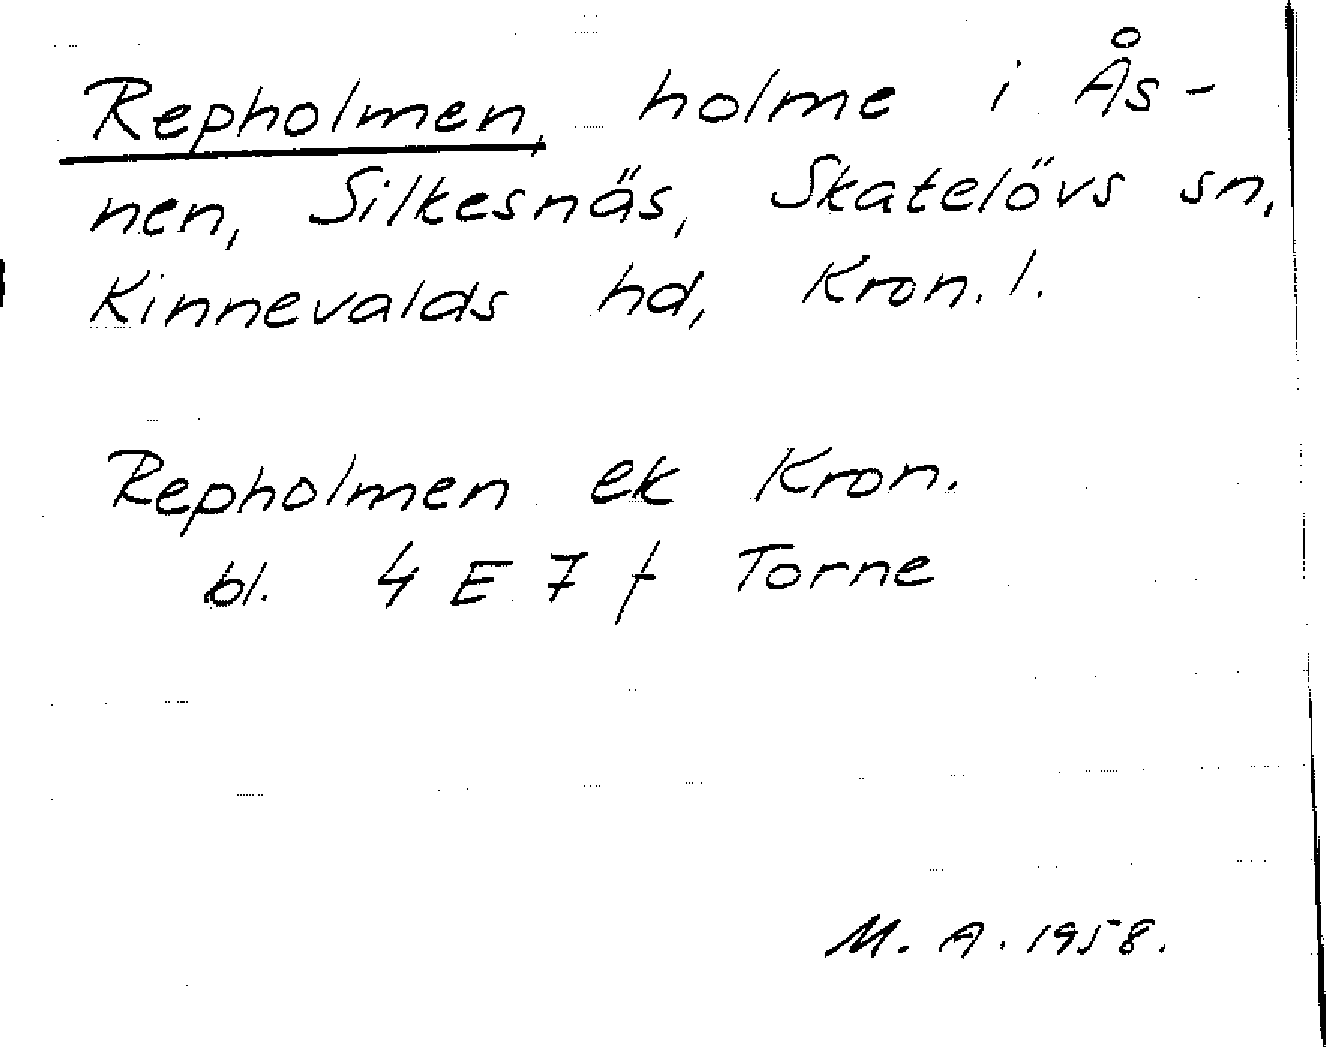 Repholmen, holme i Ås-
nen, Silkesnäs, Skatelövs sn,
Kinnevalds hd, Kron. l.
Repholmen ek Kron.
bl. 4 E 7 f Torne
M. A. 1958.